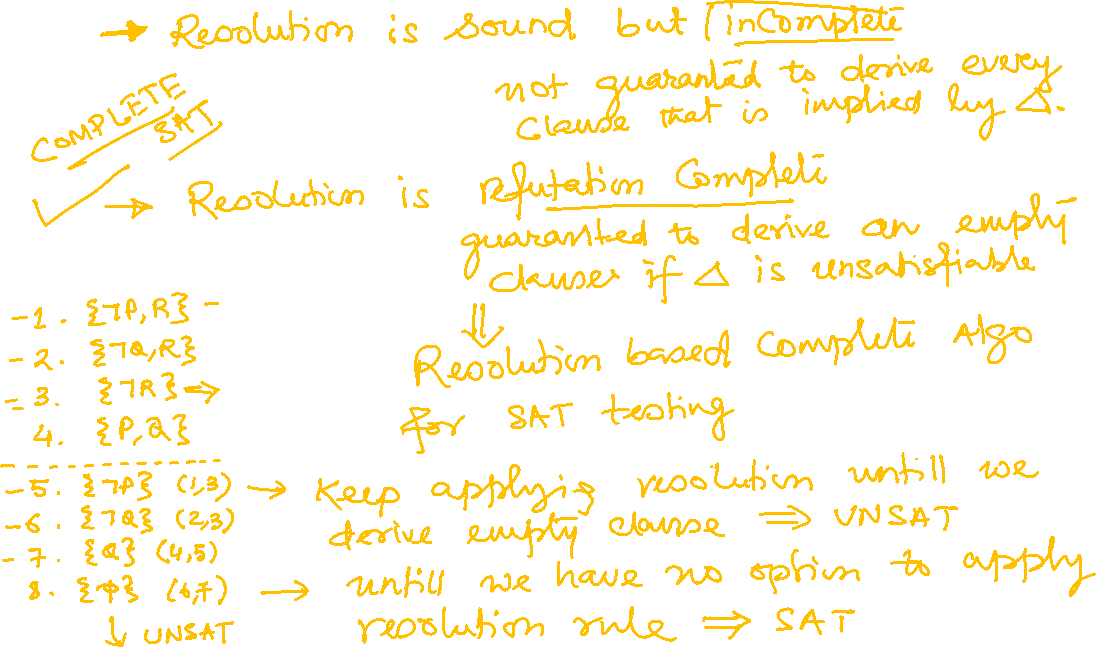 → Resolution is sound but incomplete
not guaranted to derive every
clause that is implied by Δ.
COMPLETE
SAT
→ Resolution is refutation complete
guaranted to derive an empty
clause if Δ is unsatisfiable
⇓
Resolution based complete Algo
for SAT testing
-1. {¬P,R} -
-2. {¬Q,R}
=3. {¬R} ⇒
4. {P,Q}
-5. {¬P} (1,3)
-6. {¬Q} (2,3)
-7. {Q} (4,5)
8. {φ} (6,7)
↓ UNSAT
→ Keep applying resolution untill we
derive empty clause ⇒ UNSAT
→ untill we have no option to apply
resolution rule ⇒ SAT